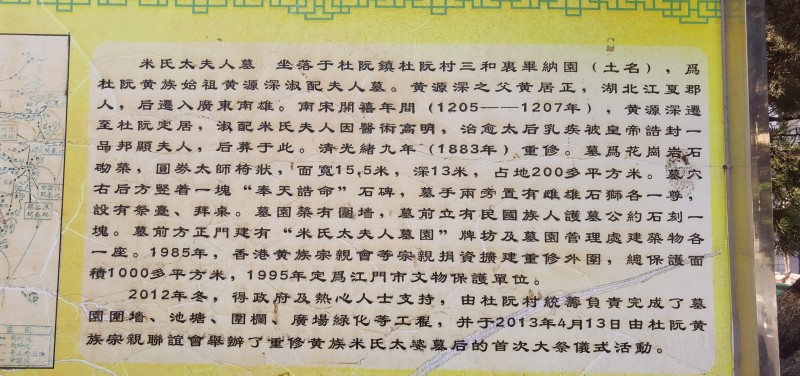 米氏太夫人墓　坐落于杜阮鎮杜阮村三和裏畢納園（土名），爲
杜阮黄族始祖黄源深淑配夫人墓。黄源深之父黄居正，湖北江夏郡
人，后遷入廣東南雄。南宋開禧年間（1205——1207年），黄源深遷
至杜阮定居，淑配米氏夫人因醫術高明，治愈太后乳疾被皇帝誥封一
品邦顯夫人，后葬于此。清光緒九年（1883年）重修。墓爲花崗岩石
砌築，圓券太師椅狀，面寬15.5米，深13米，占地200多平方米。墓穴
右后方竪着一塊“奉天誥命”石碑，墓手兩旁置有雌雄石獅各一尊，
設有祭臺、拜桌。墓園築有圍墻，墓前立有民國族人護墓公約石刻一
塊。墓前方正門建有“米氏太夫人墓園”牌坊及墓園管理處建築物各
一座。1985年，香港黄族宗親會等宗親捐資擴建重修外圍，總保護面
積1000多平方米，1995年定爲江門市文物保護單位。
2012年冬，得政府及熱心人士支持，由杜阮村統籌負責完成了墓
園圍墻、池塘、圍欄、廣場緑化等工程，并于2013年4月13日由杜阮黄
族宗親聯誼會舉辦了重修黄族米氏太婆墓后的首次大祭儀式活動。